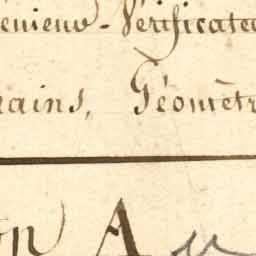 énieur-Vérificateu
rains, Géomètr
on A